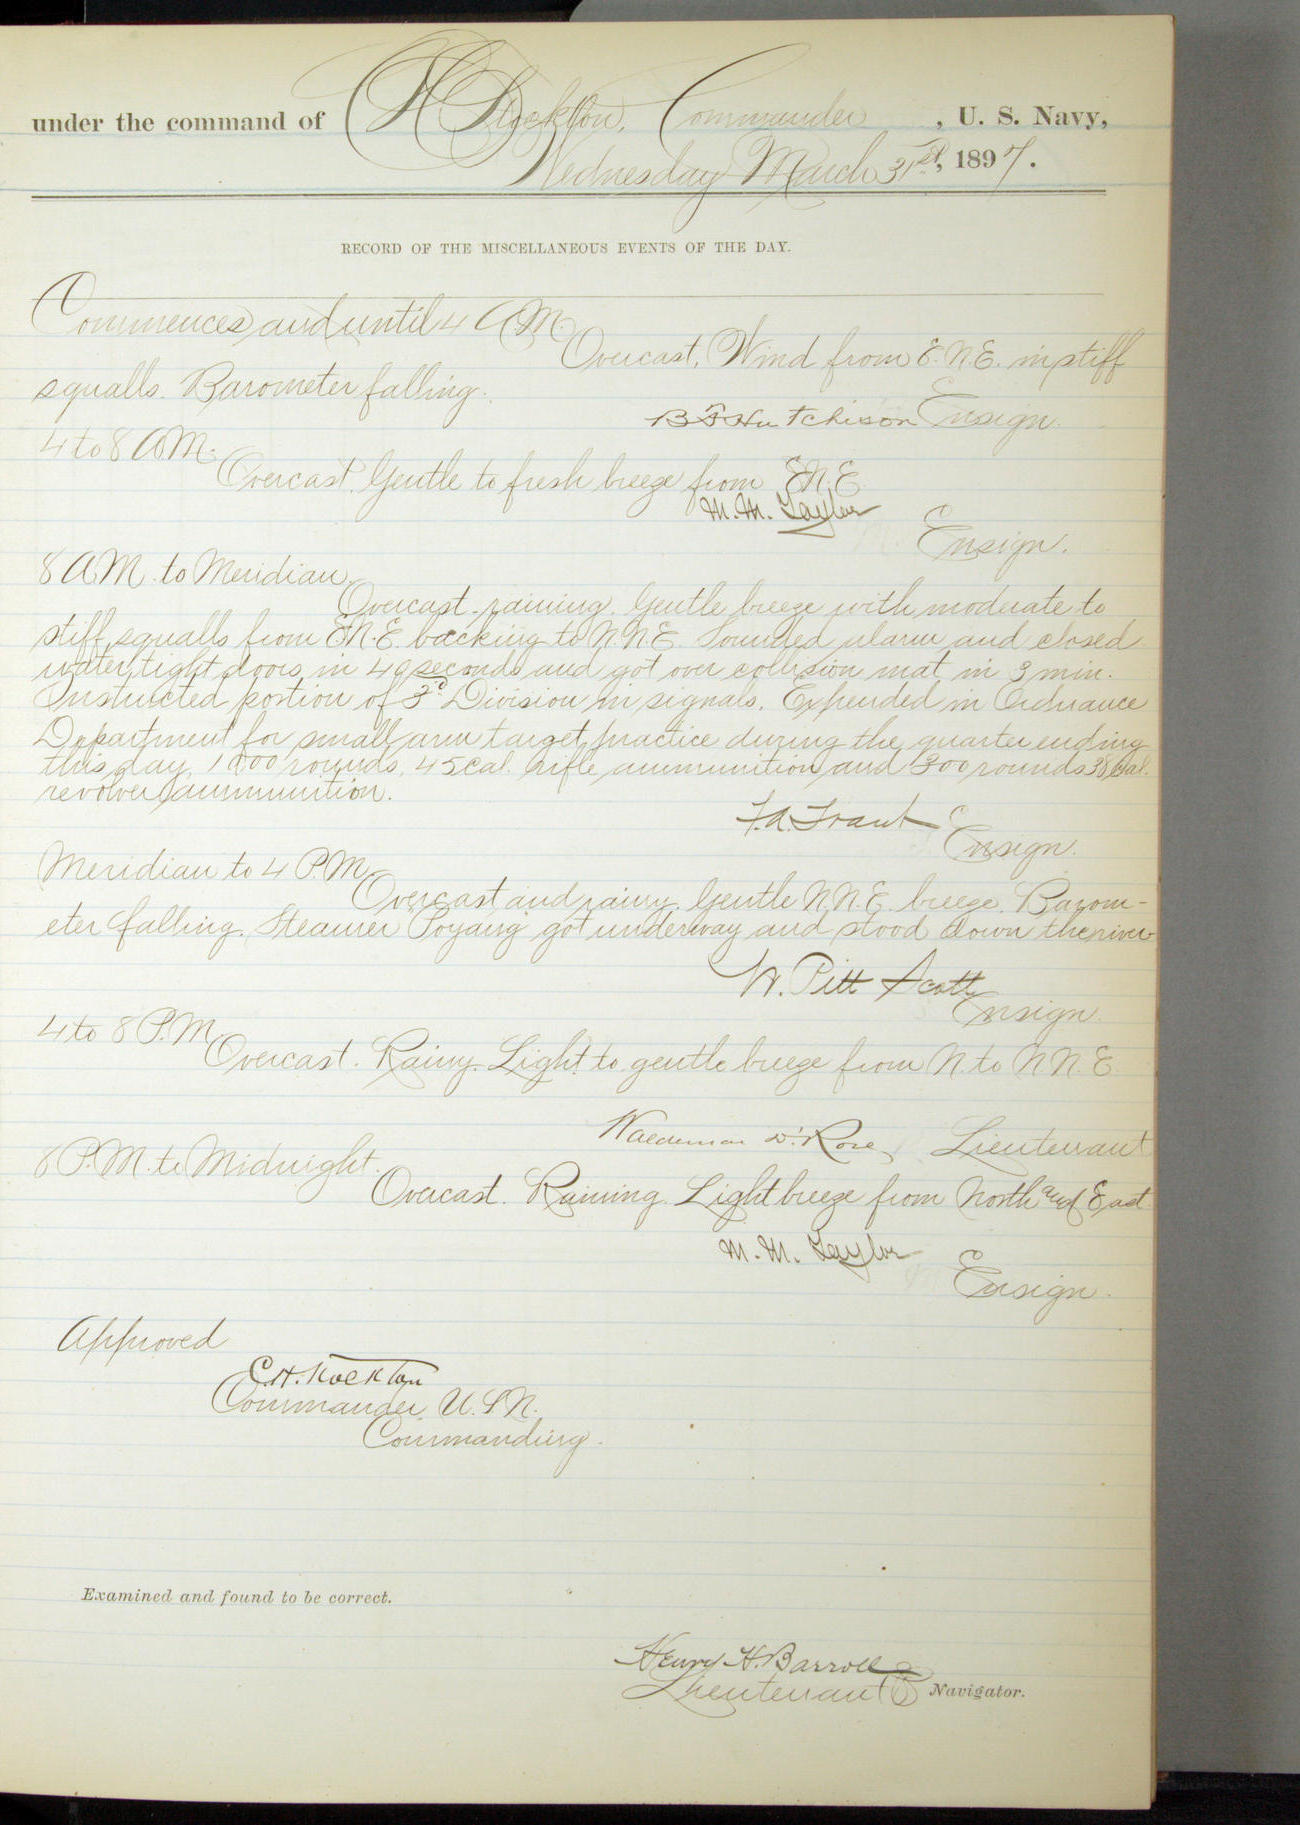 under the command of C H Stockton, Commander, U. S. Navy,
Wednesday March 31st, 1897.
RECORD OF THE MISCELLANEOUS EVENTS OF THE DAY.
Commences and until 4 A.M.
Overcast, Wind from E.N.E. in stiff
squalls. Barometer falling.
B F Hutchison Ensign.
4 to 8 A.M.
Overcast. Gentle to fresh breeze from E.N.E.
M. M. Taylor
Ensign.
8 A.M. to Meridian.
Overcast, raining. Gentle breeze with moderate to
stiff squalls from E.N.E. backing to N.N.E. Sounded alarm and closed
water tight doors in 40 seconds and got over collision mat in 3 min.
Instructed portion of 3d Division in signals. Expended in Ordnance
Department for small arm target practice during the quarter ending
this day, 1000 rounds, 45 cal. rifle ammunition and 300 rounds 38 cal.
revolver ammunition.
F. A. Traut
Ensign.
Meridian to 4 P.M.
Overcast and rainy. Gentle N.N.E. breeze. Barom-
eter falling. Steamer "Poyang" got underway and stood down the river
W. Pitt Scott
Ensign.
4 to 8 P.M.
Overcast. Rainy. Light to gentle breeze from N. to N.N.E.
Waldemar D. Rose, Lieutenant
8 P.M. to Midnight.
Overcast. Raining. Light breeze from North and East.
M. M. Taylor
Ensign.
Approved
C. H. Stockton
Commander, U.S.N.
Commanding.
Examined and found to be correct.
Henry H. Barroll
Lieutenant Navigator.